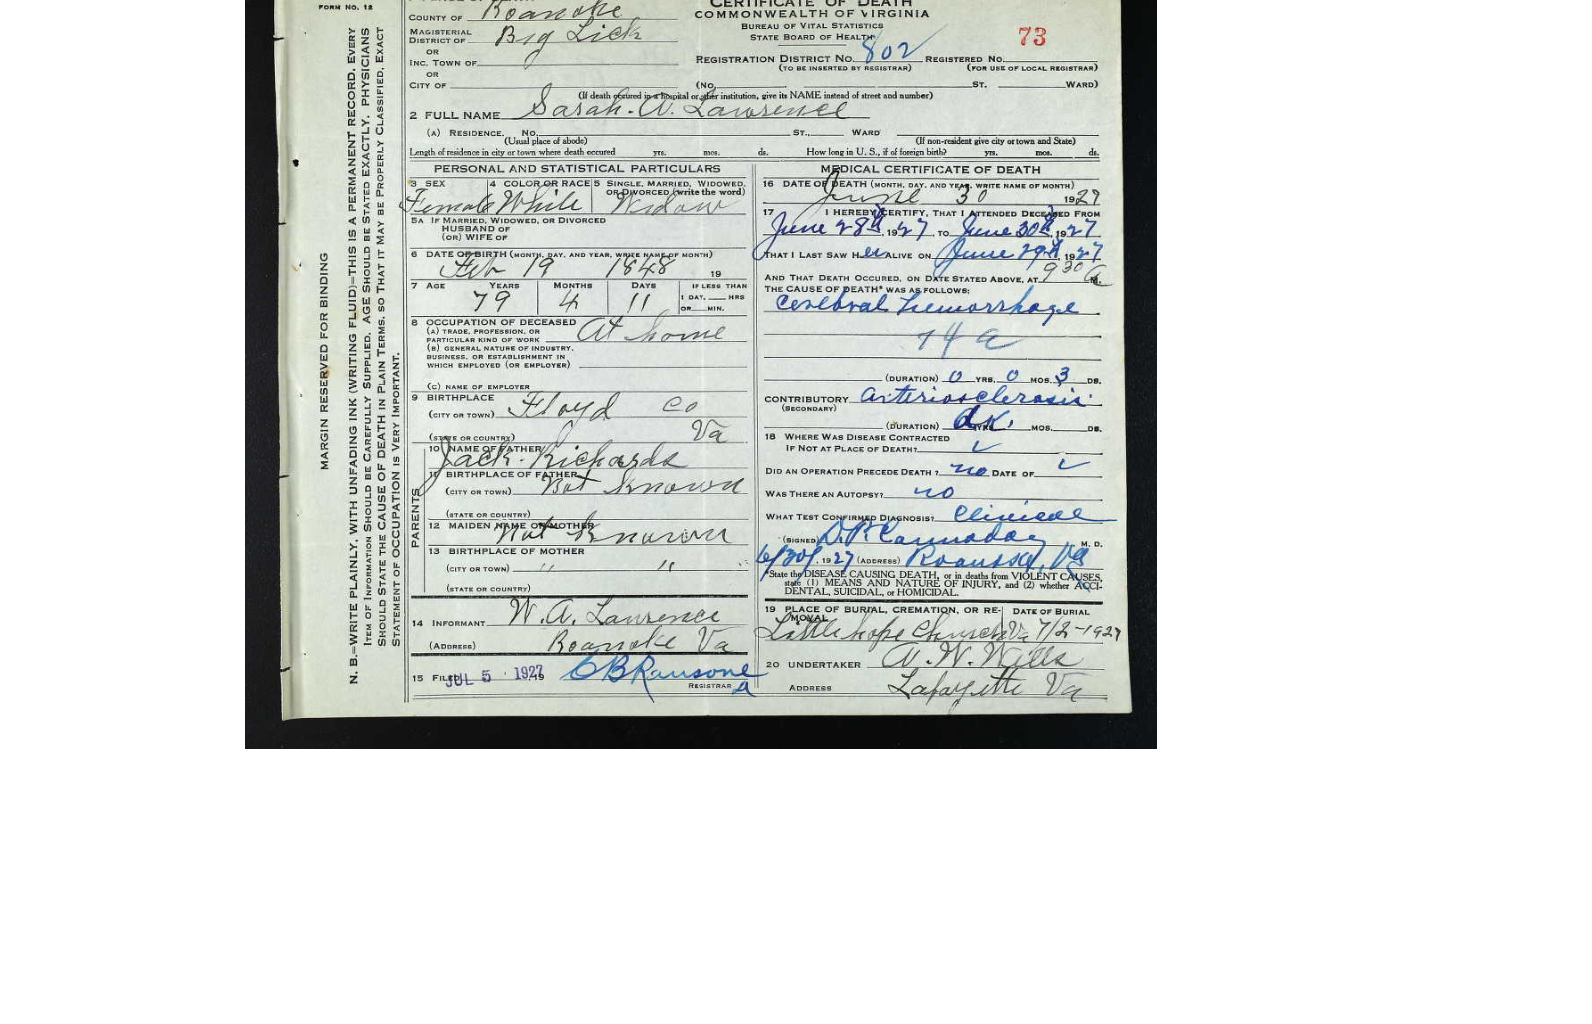 FORM NO. 12
MARGIN RESERVED FOR BINDING
N. B.—WRITE PLAINLY, WITH UNFADING INK (WRITING FLUID)—THIS IS A PERMANENT RECORD. EVERY
ITEM OF INFORMATION SHOULD BE CAREFULLY SUPPLIED. AGE SHOULD BE STATED EXACTLY. PHYSICIANS
SHOULD STATE THE CAUSE OF DEATH IN PLAIN TERMS, SO THAT IT MAY BE PROPERLY CLASSIFIED. EXACT
STATEMENT OF OCCUPATION IS VERY IMPORTANT.
CERTIFICATE OF DEATH
COMMONWEALTH OF VIRGINIA
BUREAU OF VITAL STATISTICS
STATE BOARD OF HEALTH
73
COUNTY OF Roanoke
MAGISTERIAL
DISTRICT OF Big Lick
OR
INC. TOWN OF
OR
CITY OF
REGISTRATION DISTRICT NO. 802 REGISTERED NO.
(TO BE INSERTED BY REGISTRAR) (FOR USE OF LOCAL REGISTRAR)
(NO. ST. WARD)
(If death occured in a hospital or other institution, give its NAME instead of street and number)
2 FULL NAME Sarah. A. Lawrence
(A) RESIDENCE. NO. ST., WARD
(Usual place of abode) (If non-resident give city or town and State)
Length of residence in city or town where death occured yrs. mos. ds. How long in U. S., if of foreign birth? yrs. mos. ds.
PERSONAL AND STATISTICAL PARTICULARS
3 SEX 4 COLOR OR RACE 5 SINGLE, MARRIED, WIDOWED, OR DIVORCED (write the word)
Female White Widow
5A IF MARRIED, WIDOWED, OR DIVORCED
HUSBAND OF
(OR) WIFE OF
6 DATE OF BIRTH (MONTH, DAY, AND YEAR, WRITE NAME OF MONTH)
Feb 19 1848 19
7 AGE YEARS MONTHS DAYS IF LESS THAN
79 4 11 1 DAY, HRS
OR MIN.
8 OCCUPATION OF DECEASED
(A) TRADE, PROFESSION, OR
PARTICULAR KIND OF WORK At home
(B) GENERAL NATURE OF INDUSTRY,
BUSINESS, OR ESTABLISHMENT IN
WHICH EMPLOYED (OR EMPLOYER)
(C) NAME OF EMPLOYER
9 BIRTHPLACE
(CITY OR TOWN) Floyd Co
(STATE OR COUNTRY) Va
PARENTS
10 NAME OF FATHER
Jack. Richards
11 BIRTHPLACE OF FATHER
(CITY OR TOWN) Not Known
(STATE OR COUNTRY)
12 MAIDEN NAME OF MOTHER
Not Known
13 BIRTHPLACE OF MOTHER
(CITY OR TOWN) " "
(STATE OR COUNTRY)
14 INFORMANT W. A. Lawrence
(ADDRESS) Roanoke Va
15 FILED JUL 5 1927 C B Ransone
REGISTRAR
MEDICAL CERTIFICATE OF DEATH
16 DATE OF DEATH (MONTH, DAY, AND YEAR, WRITE NAME OF MONTH)
June 30 1927
17 I HEREBY CERTIFY, THAT I ATTENDED DECEASED FROM
June 28th, 1927 TO June 30th, 1927
THAT I LAST SAW HER ALIVE ON June 29th 1927
AND THAT DEATH OCCURED, ON DATE STATED ABOVE, AT 930 A M.
THE CAUSE OF DEATH* WAS AS FOLLOWS:
Cerebral hemorrhage
74 a
(DURATION) 0 YRS. 0 MOS. 3 DS.
CONTRIBUTORY Arteriosclerosis
(SECONDARY)
(DURATION) d.K. YRS. MOS. DS.
18 WHERE WAS DISEASE CONTRACTED
IF NOT AT PLACE OF DEATH?
DID AN OPERATION PRECEDE DEATH? no DATE OF
WAS THERE AN AUTOPSY? no
WHAT TEST CONFIRMED DIAGNOSIS? Clinical
(SIGNED) M. D.
6/30, 1927 (ADDRESS) Va
*State the DISEASE CAUSING DEATH, or in deaths from VIOLENT CAUSES,
state (1) MEANS AND NATURE OF INJURY, and (2) whether ACCI-
DENTAL, SUICIDAL, or HOMICIDAL.
19 PLACE OF BURIAL, CREMATION, OR RE-
MOVAL DATE OF BURIAL
Little hope Church Va 7/2-1927
20 UNDERTAKER A. W. Wills
ADDRESS Lafayette Va